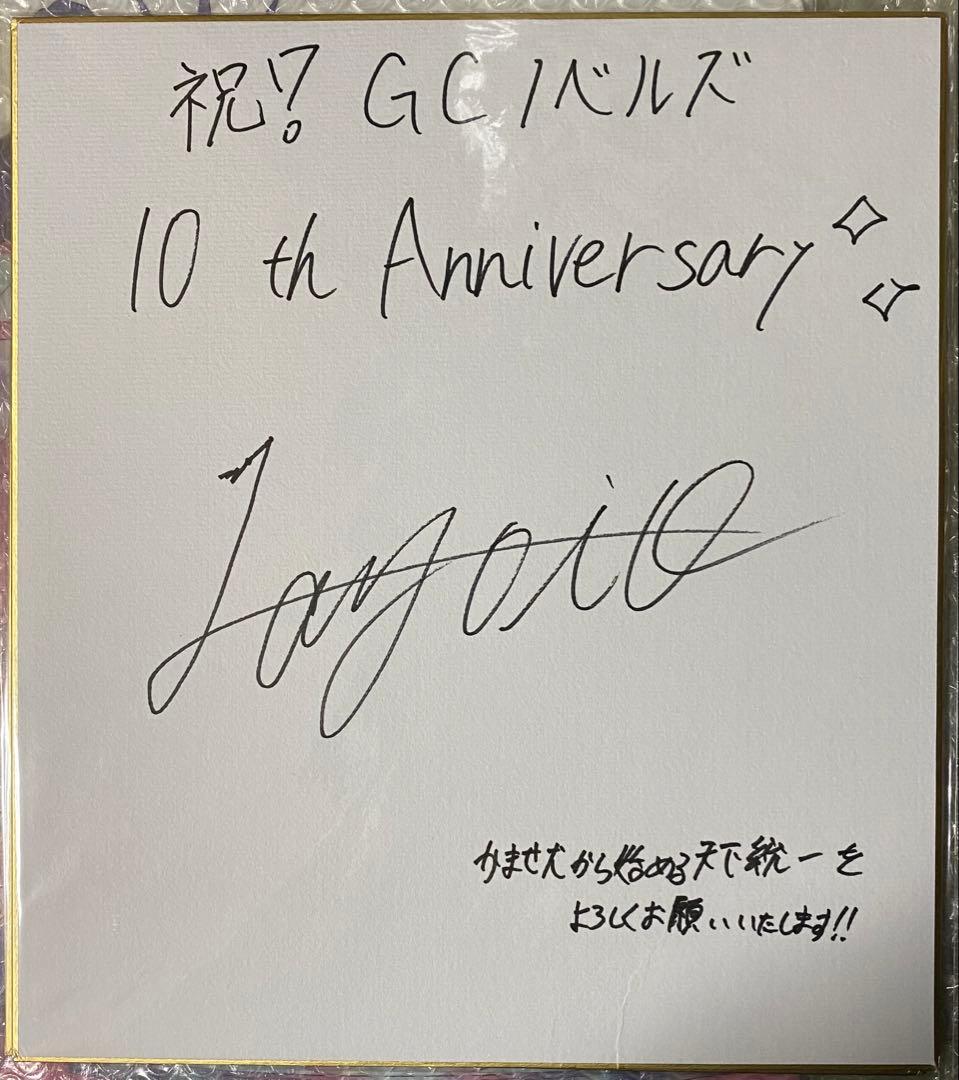 祝!? GCノベルズ
10 th Anniversary
Yayoi0
かませ犬から始める天下統一を
よろしくお願いいたします!!